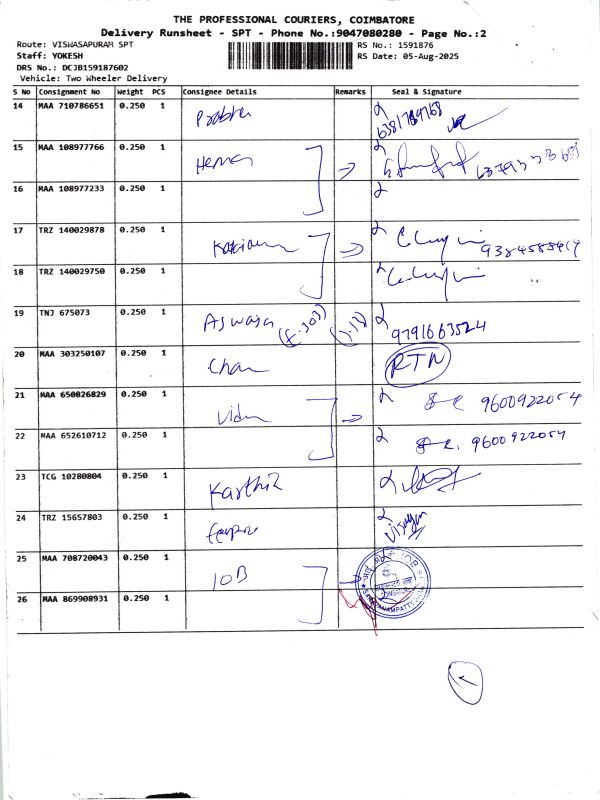 THE PROFESSIONAL COURIERS, COIMBATORE
Delivery Runsheet - SPT - Phone No.:9047080280 - Page No.:2
Route: VISWASAPURAM SPT RS No.: 1591876
Staff: YOKESH RS Date: 05-Aug-2025
DRS No.: DCJB159187602
Vehicle: Two Wheeler Delivery
S No Consignment No Weight PCS Consignee Details Remarks Seal & Signature
14 MAA 710786651 0.250 1 Prabhu
15 MAA 108977766 0.250 1
16 MAA 108977233 0.250 1
17 TRZ 140029878 0.250 1
18 TRZ 140029750 0.250 1
19 TNJ 675073 0.250 1 9791663524
20 MAA 303250107 0.250 1 RTN
21 MAA 650826829 0.250 1 9600922054
22 MAA 652610712 0.250 1 9600922054
23 TCG 10280804 0.250 1 Karthik
24 TRZ 15657803 0.250 1
25 MAA 708720043 0.250 1 IOB
26 MAA 869908931 0.250 1